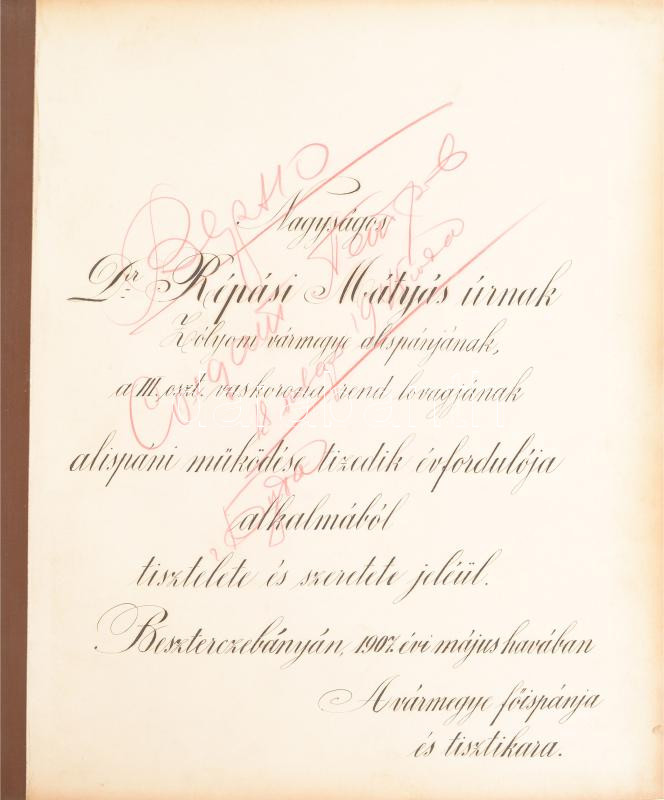 Nagyságos
Dr. Répási Mátyás úrnak
Zólyom vármegye alispánjának,
a III. oszt. vaskorona rend lovagjának
alispáni működése tizedik évfordulója
alkalmából
tisztelete és szeretete jeléül.
Beszterczebányán, 1907. évi május havában
A vármegye főispánja
és tisztikara.
Верно